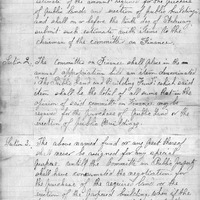 estimate of the amount required for the purchase
of public lands and erection of public buildings
and shall on or before the tenth day of February
submit such estimate with items to the
chairman of the committee on Finance.
Section 2. The committee on Finance shall place in the
annual appropriation bill an item denominated
"The Public Land and Building Fund", which said
item shall be the total of all sums that in the
opinion of said committee on Finance may be
required for the purchase of public land or the
erection of Public Buildings.
Section 3. The above named fund or any part thereof
shall never be assigned for any specific
purpose until the Committee on Public property
shall have consummated the negotiation for
the purchase of the required land or the
erection of the proposed building when if the